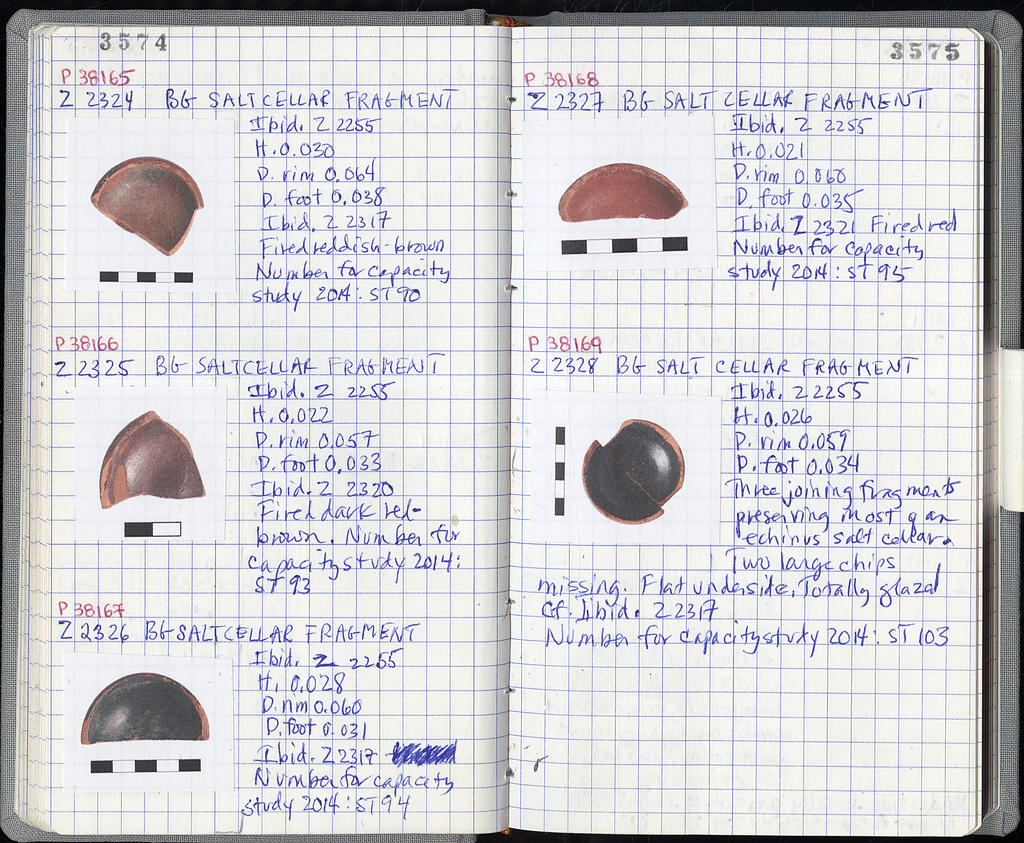 3574
P 38165
Z 2324 BG SALTCELLAR FRAGMENT
Ibid. Z 2255
H. 0.030
D. rim 0.064
D. foot 0.038
Ibid. Z 2317
Fired reddish-brown
Number for capacity
study 2014: ST 90
P 38166
Z 2325 BG SALTCELLAR FRAGMENT
Ibid. Z 2255
H. 0.022
D. rim 0.057
D. foot 0.033
Ibid. Z 2320
Fired dark red-
brown. Number for
capacity study 2014:
ST 93
P 38167
Z 2326 BG SALTCELLAR FRAGMENT
Ibid. Z 2255
H. 0.028
D. rim 0.060
D. foot 0.031
Ibid. Z 2317
Number for capacity
study 2014: ST 94
3575
P 38168
Z 2327 BG SALT CELLAR FRAGMENT
Ibid. Z 2255
H. 0.021
D. rim 0.060
D. foot 0.035
Ibid. Z 2321 Fired red
Number for capacity
study 2014: ST 95
P 38169
Z 2328 BG SALT CELLAR FRAGMENT
Ibid. Z 2255
H. 0.026
D. rim 0.059
D. foot 0.034
Three joining fragments
preserving most of an
echinus salt cellar.
Two large chips
missing. Flat underside. Totally glazed
Cf. Ibid. Z 2317
Number for capacity study 2014: ST 103